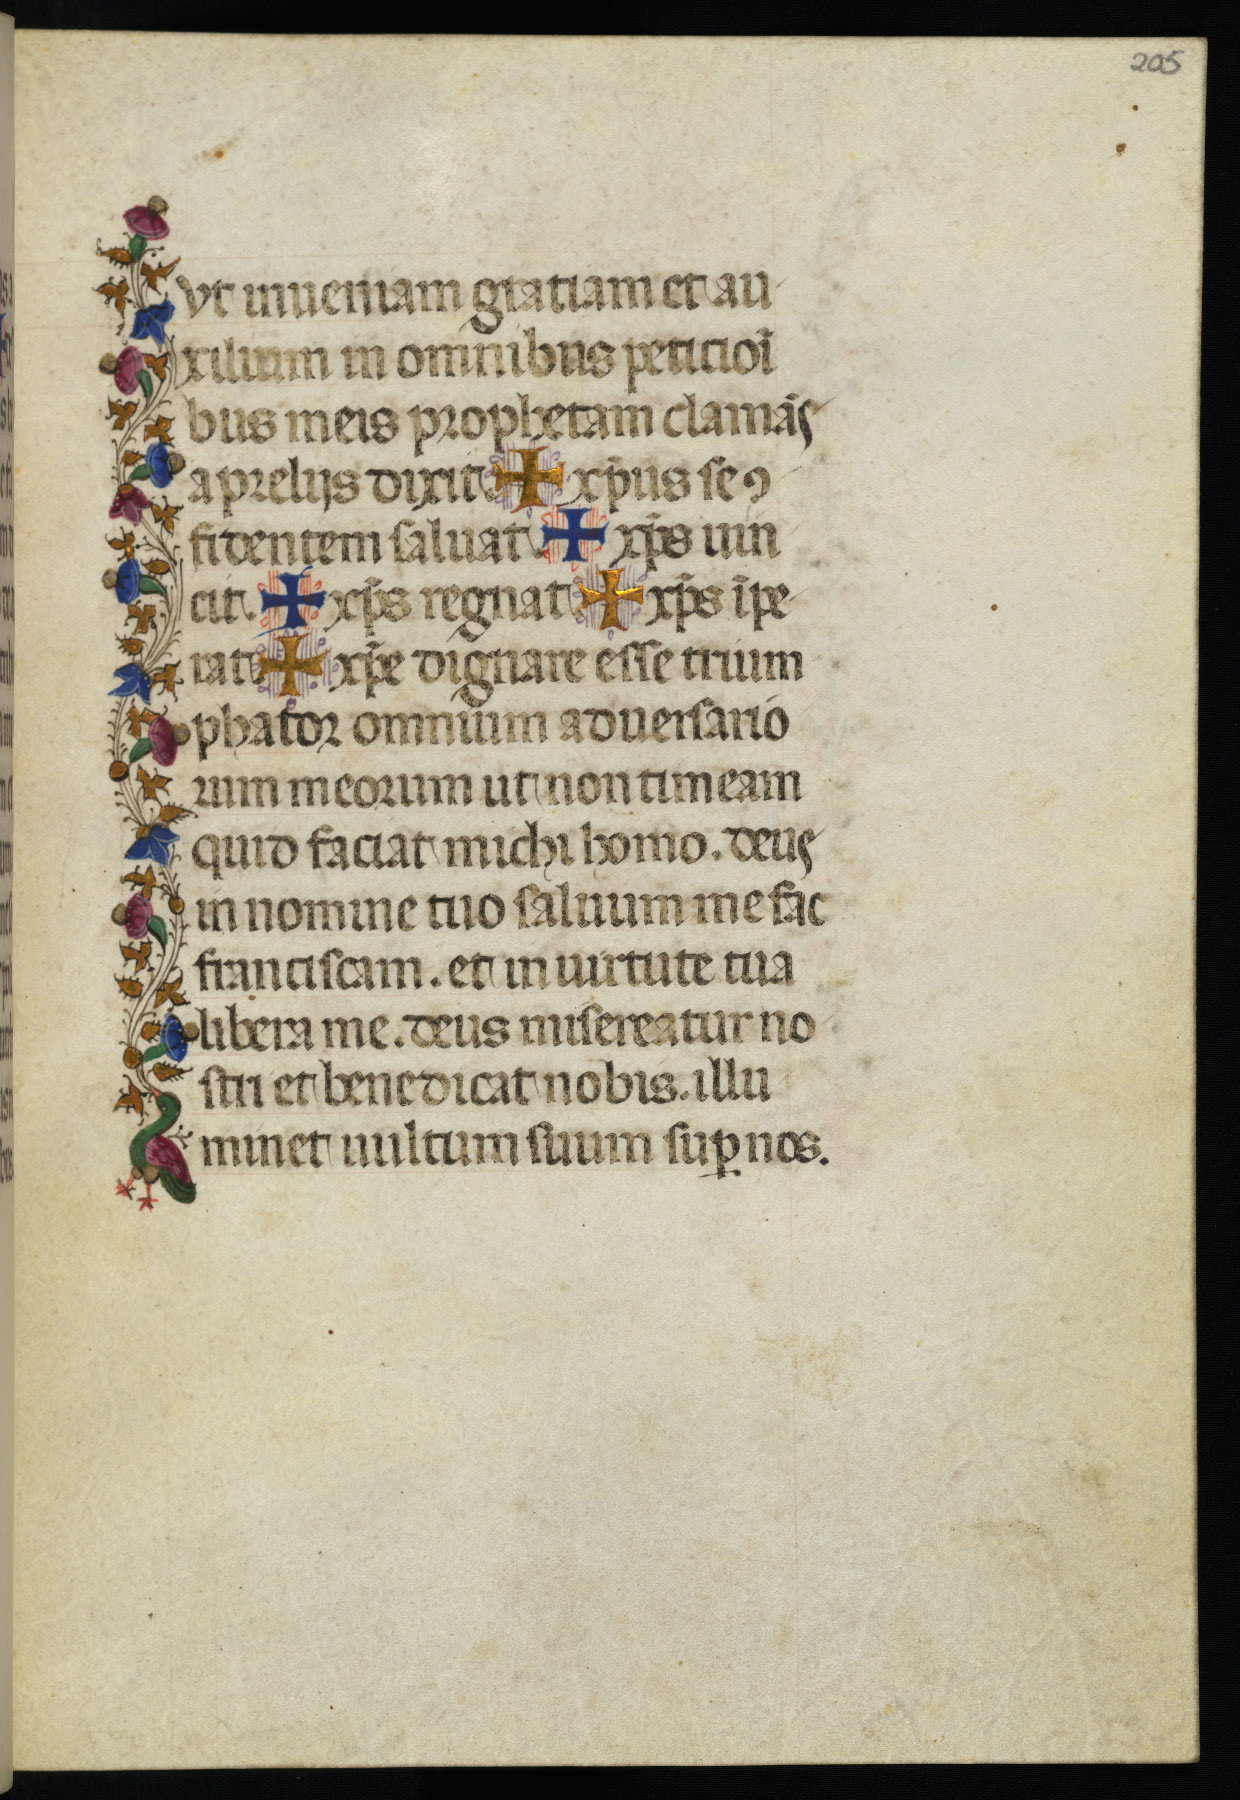 205
vt inueniam gratiam et au
xilium in omnibus peticioī
bus meis prophetam clamās
a prelijs dixit ✠ xp̄us se ꝯ
fidentem saluat ✠ xp̄s uin
cit. ✠ xp̄s regnat ✠ xp̄s īpe
rat ✠ xp̄e dignare esse trium
phator omnium aduersario
rum meorum ut non timeam
quid faciat michi homo. deus
in nomine tuo saluum me fac
franciscam. et in uirtute tua
libera me. deus misereatur no
stri et benedicat nobis. illu
minet uultum suum suꝑ nos.